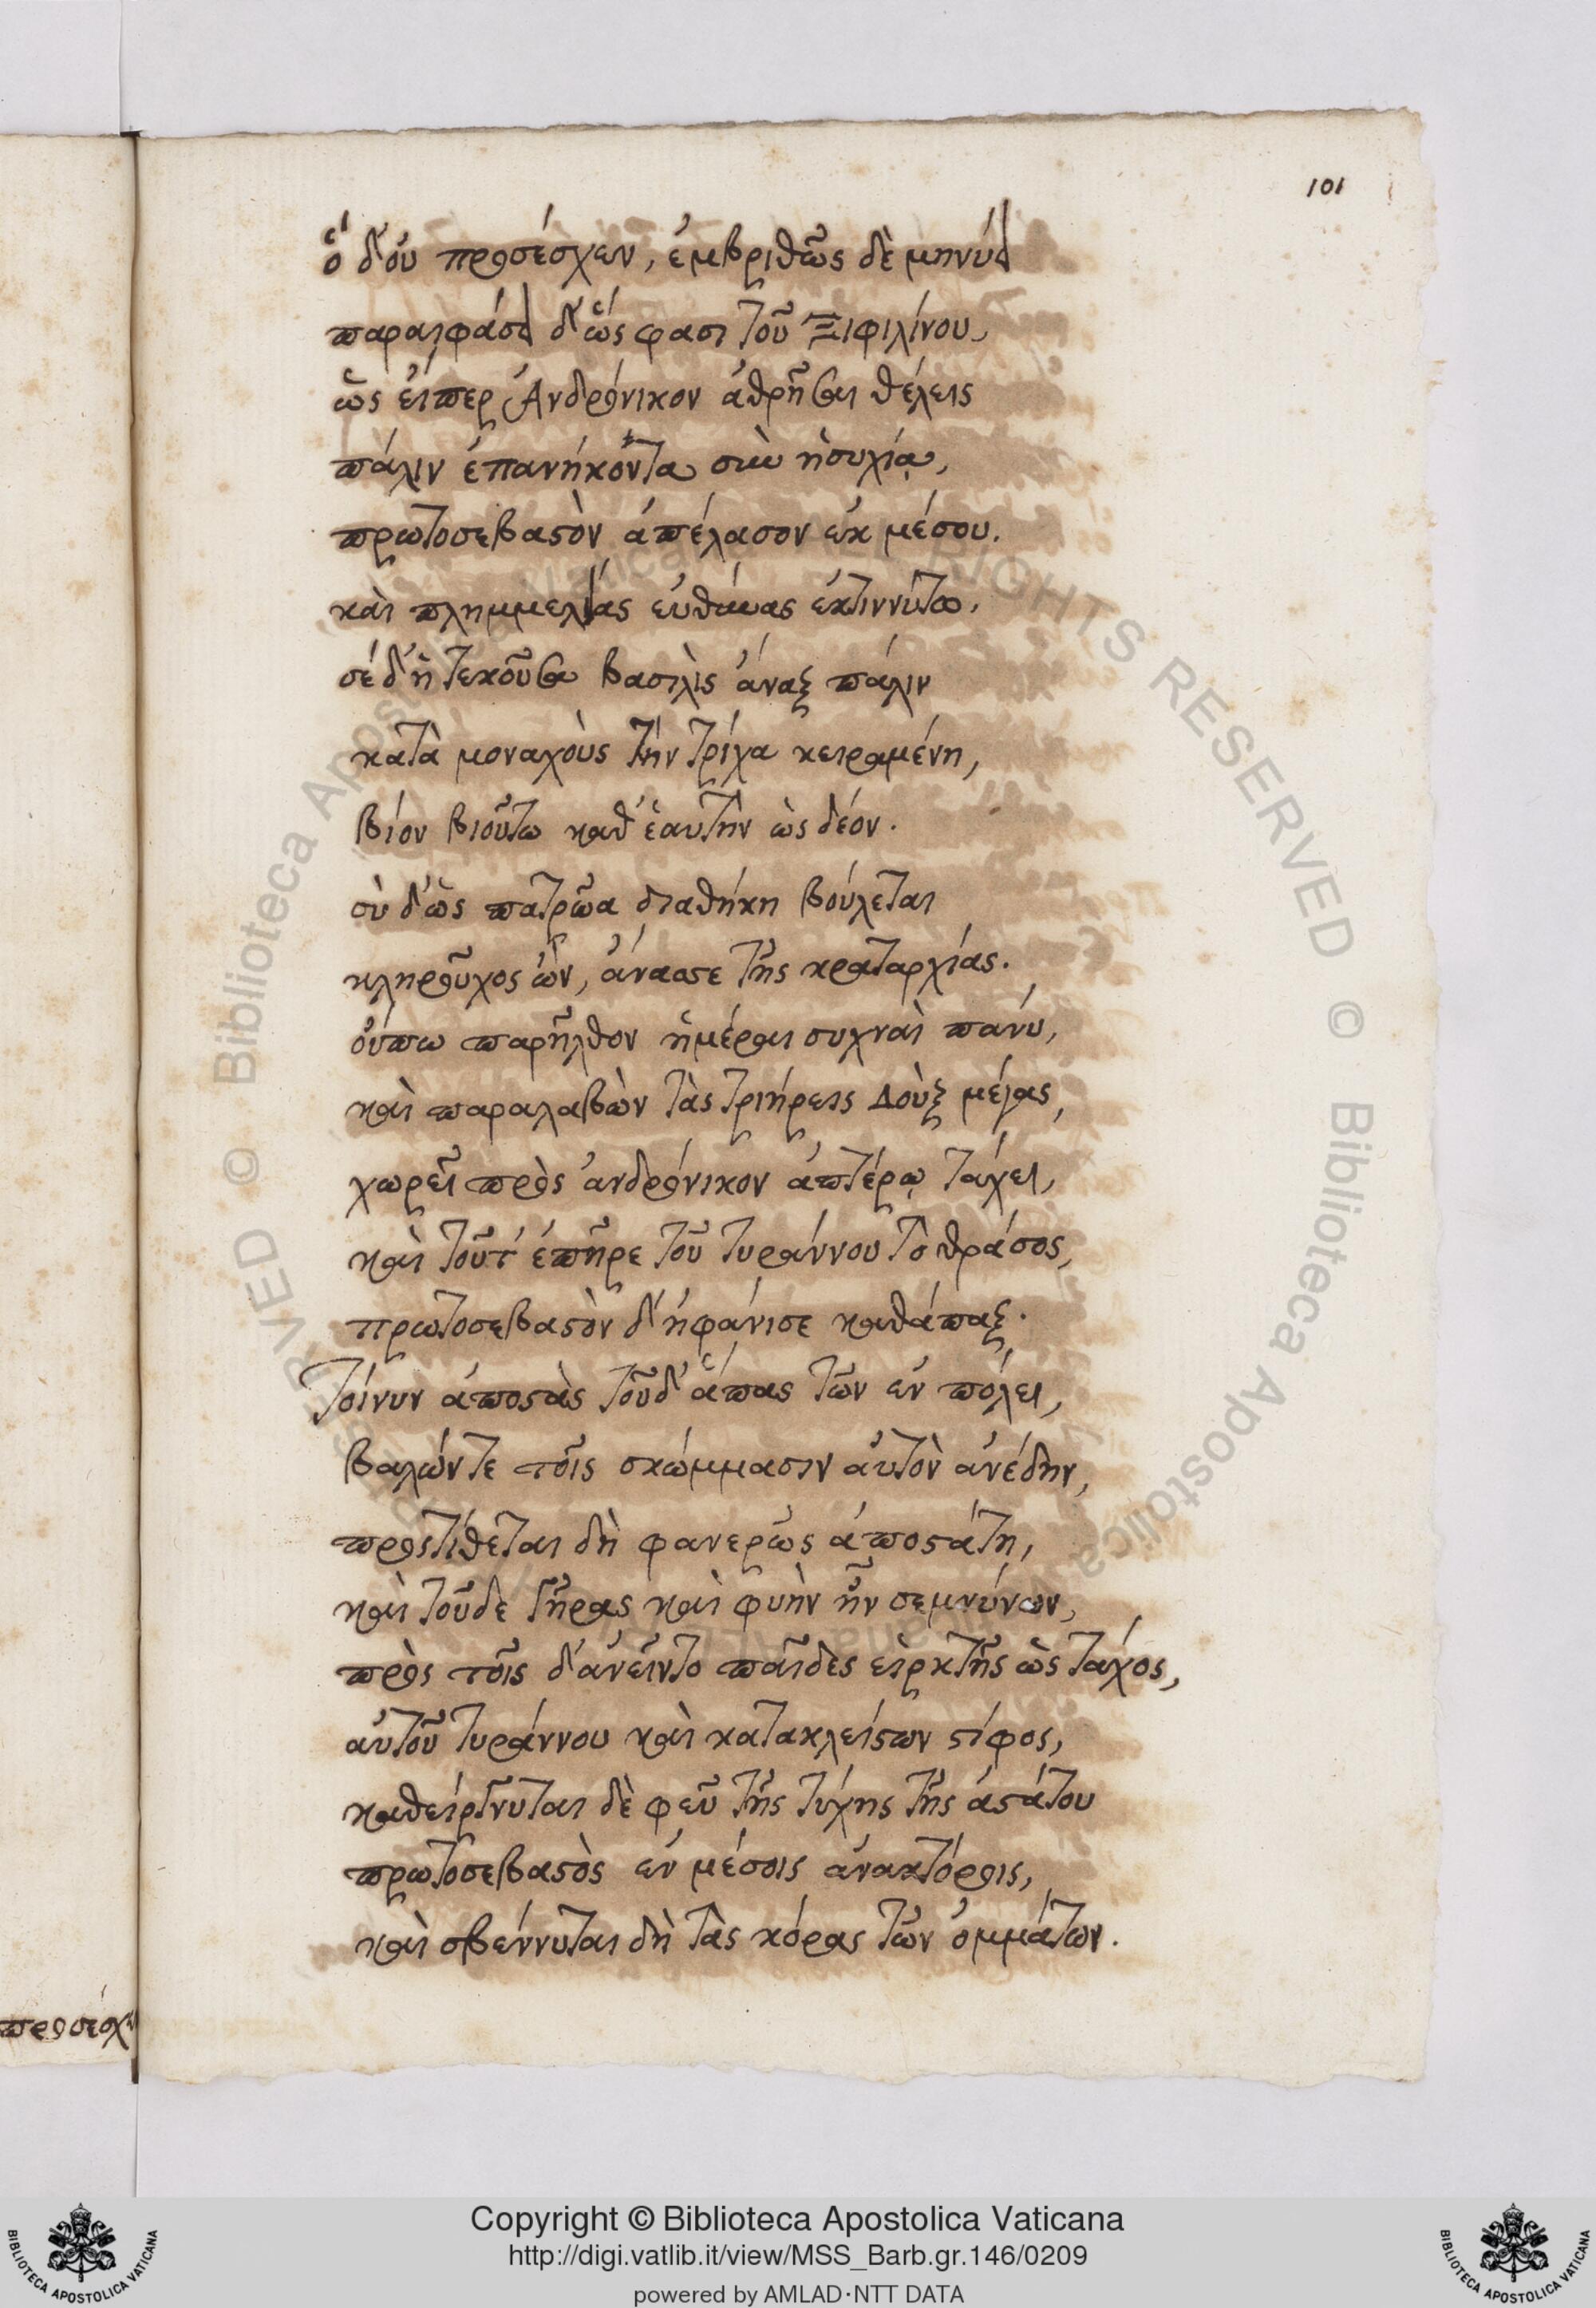 101
ὁ δ' οὐ προσέσχεν, ἐμβριθῶς δὲ μηνύει
παραιφάσει δ' ὥς φασι τοῦ Ξιφιλίνου,
ὣς εἴπερ Ἀνδρόνικον ἀθρῆσαι θέλεις
πάλιν ἐπανήκοντα σὺν ἡσυχίᾳ,
πρωτοσεβαστὸν ἀπέλασον ἐκ μέσου.
καὶ πλημμελίας εὐθύνας ἐκτιννύτω.
σὲ δ' ἡ τεκοῦσα βασιλὶς ἄναξ πάλιν
κατὰ μοναχοὺς τὴν τρίχα κειραμένη,
βίον βιούτω καθ' ἑαυτὴν ὡς δέον.
σὺ δ' ὡς πατρῶα διαθήκη βούλεται
κληροῦχος ὢν, ἄνασσε τῆς κραταρχίας.
οὔπω παρῆλθον ἡμέραι συχναὶ πανύ,
καὶ παραλαβὼν τὰς τριήρεις Δοὺξ μέγας,
χωρεῖ πρὸς ἀνδρόνικον ἀπτέρῳ τάχει,
καὶ τοῦτ' ἐπῆρε τοῦ τυράννου τὸ θράσος,
πρωτοσεβαστὸν δ' ἠφάνισε καθάπαξ.
Τοίνυν ἀποστὰς τοῦδ' ἅπας τῶν ἐν πόλει,
βαλών τε τοῖς σκώμμασιν αὐτὸν ἀνέδην,
προστίθεται δὴ φανερῶς ἀποστάτῃ,
καὶ τοῦδε γῆρας καὶ φυὴν ἦν σεμνύνων,
πρὸς τοῖς δ' ἀνεῖντο παῖδες εἱρκτῆς ὡς τάχος,
αὐτοῦ τυράννου καὶ κατακλείστων στίφος,
καθείργνυται δὲ φεῦ τῆς τύχης τῆς ἀστάτου
πρωτοσεβαστὸς ἐν μέσοις ἀνακτόροις,
καὶ σβέννυται δὴ τὰς κόρας τῶν ὀμμάτων.
προσέσχ
Copyright © Biblioteca Apostolica Vaticana
http://digi.vatlib.it/view/MSS_Barb.gr.146/0209
powered by AMLAD·NTT DATA